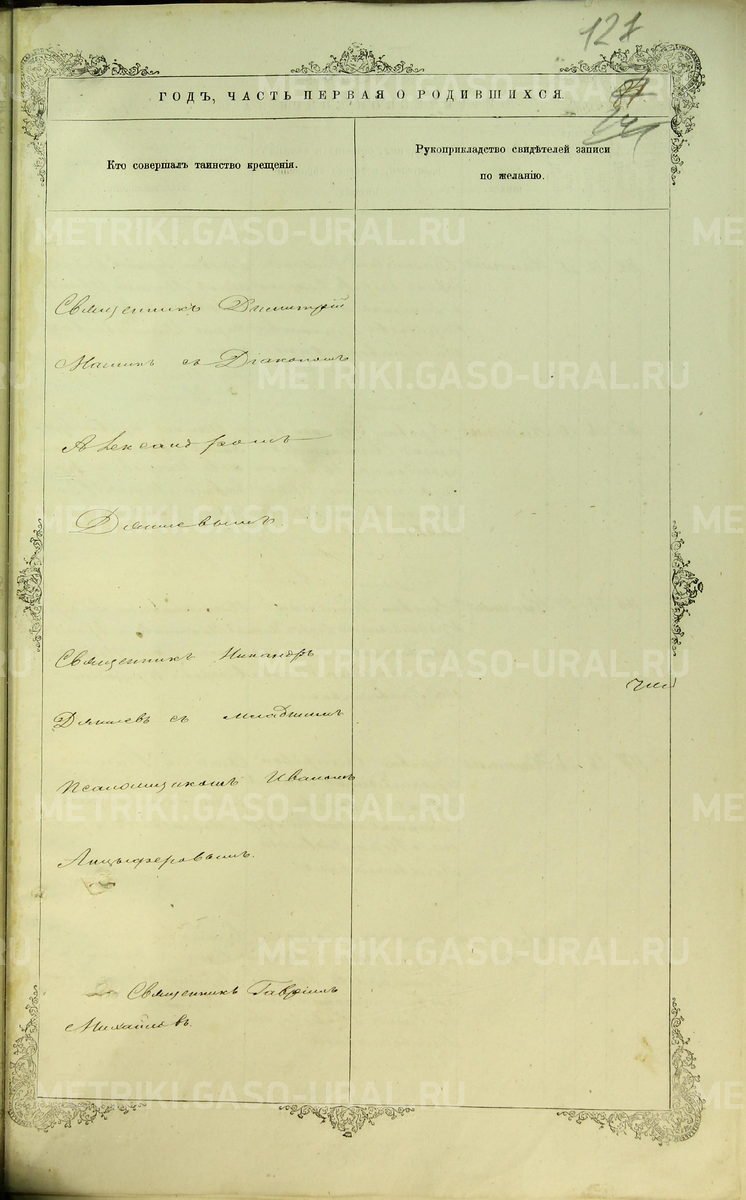 127
ГОДЪ, ЧАСТЬ ПЕРВАЯ О РОДИВШИХСЯ.
Кто совершалъ таинство крещенія.
Рукоприкладство свидѣтелей записи
по желанію.
Священникъ Димитрій
съ Діакономъ
Александромъ
Священникъ Никаноръ
съ младшимъ
Псаломщикомъ Иваномъ
Анцыферовымъ.
Священникъ Гавріилъ
Михайловъ.
METRIKI.GASO-URAL.RU